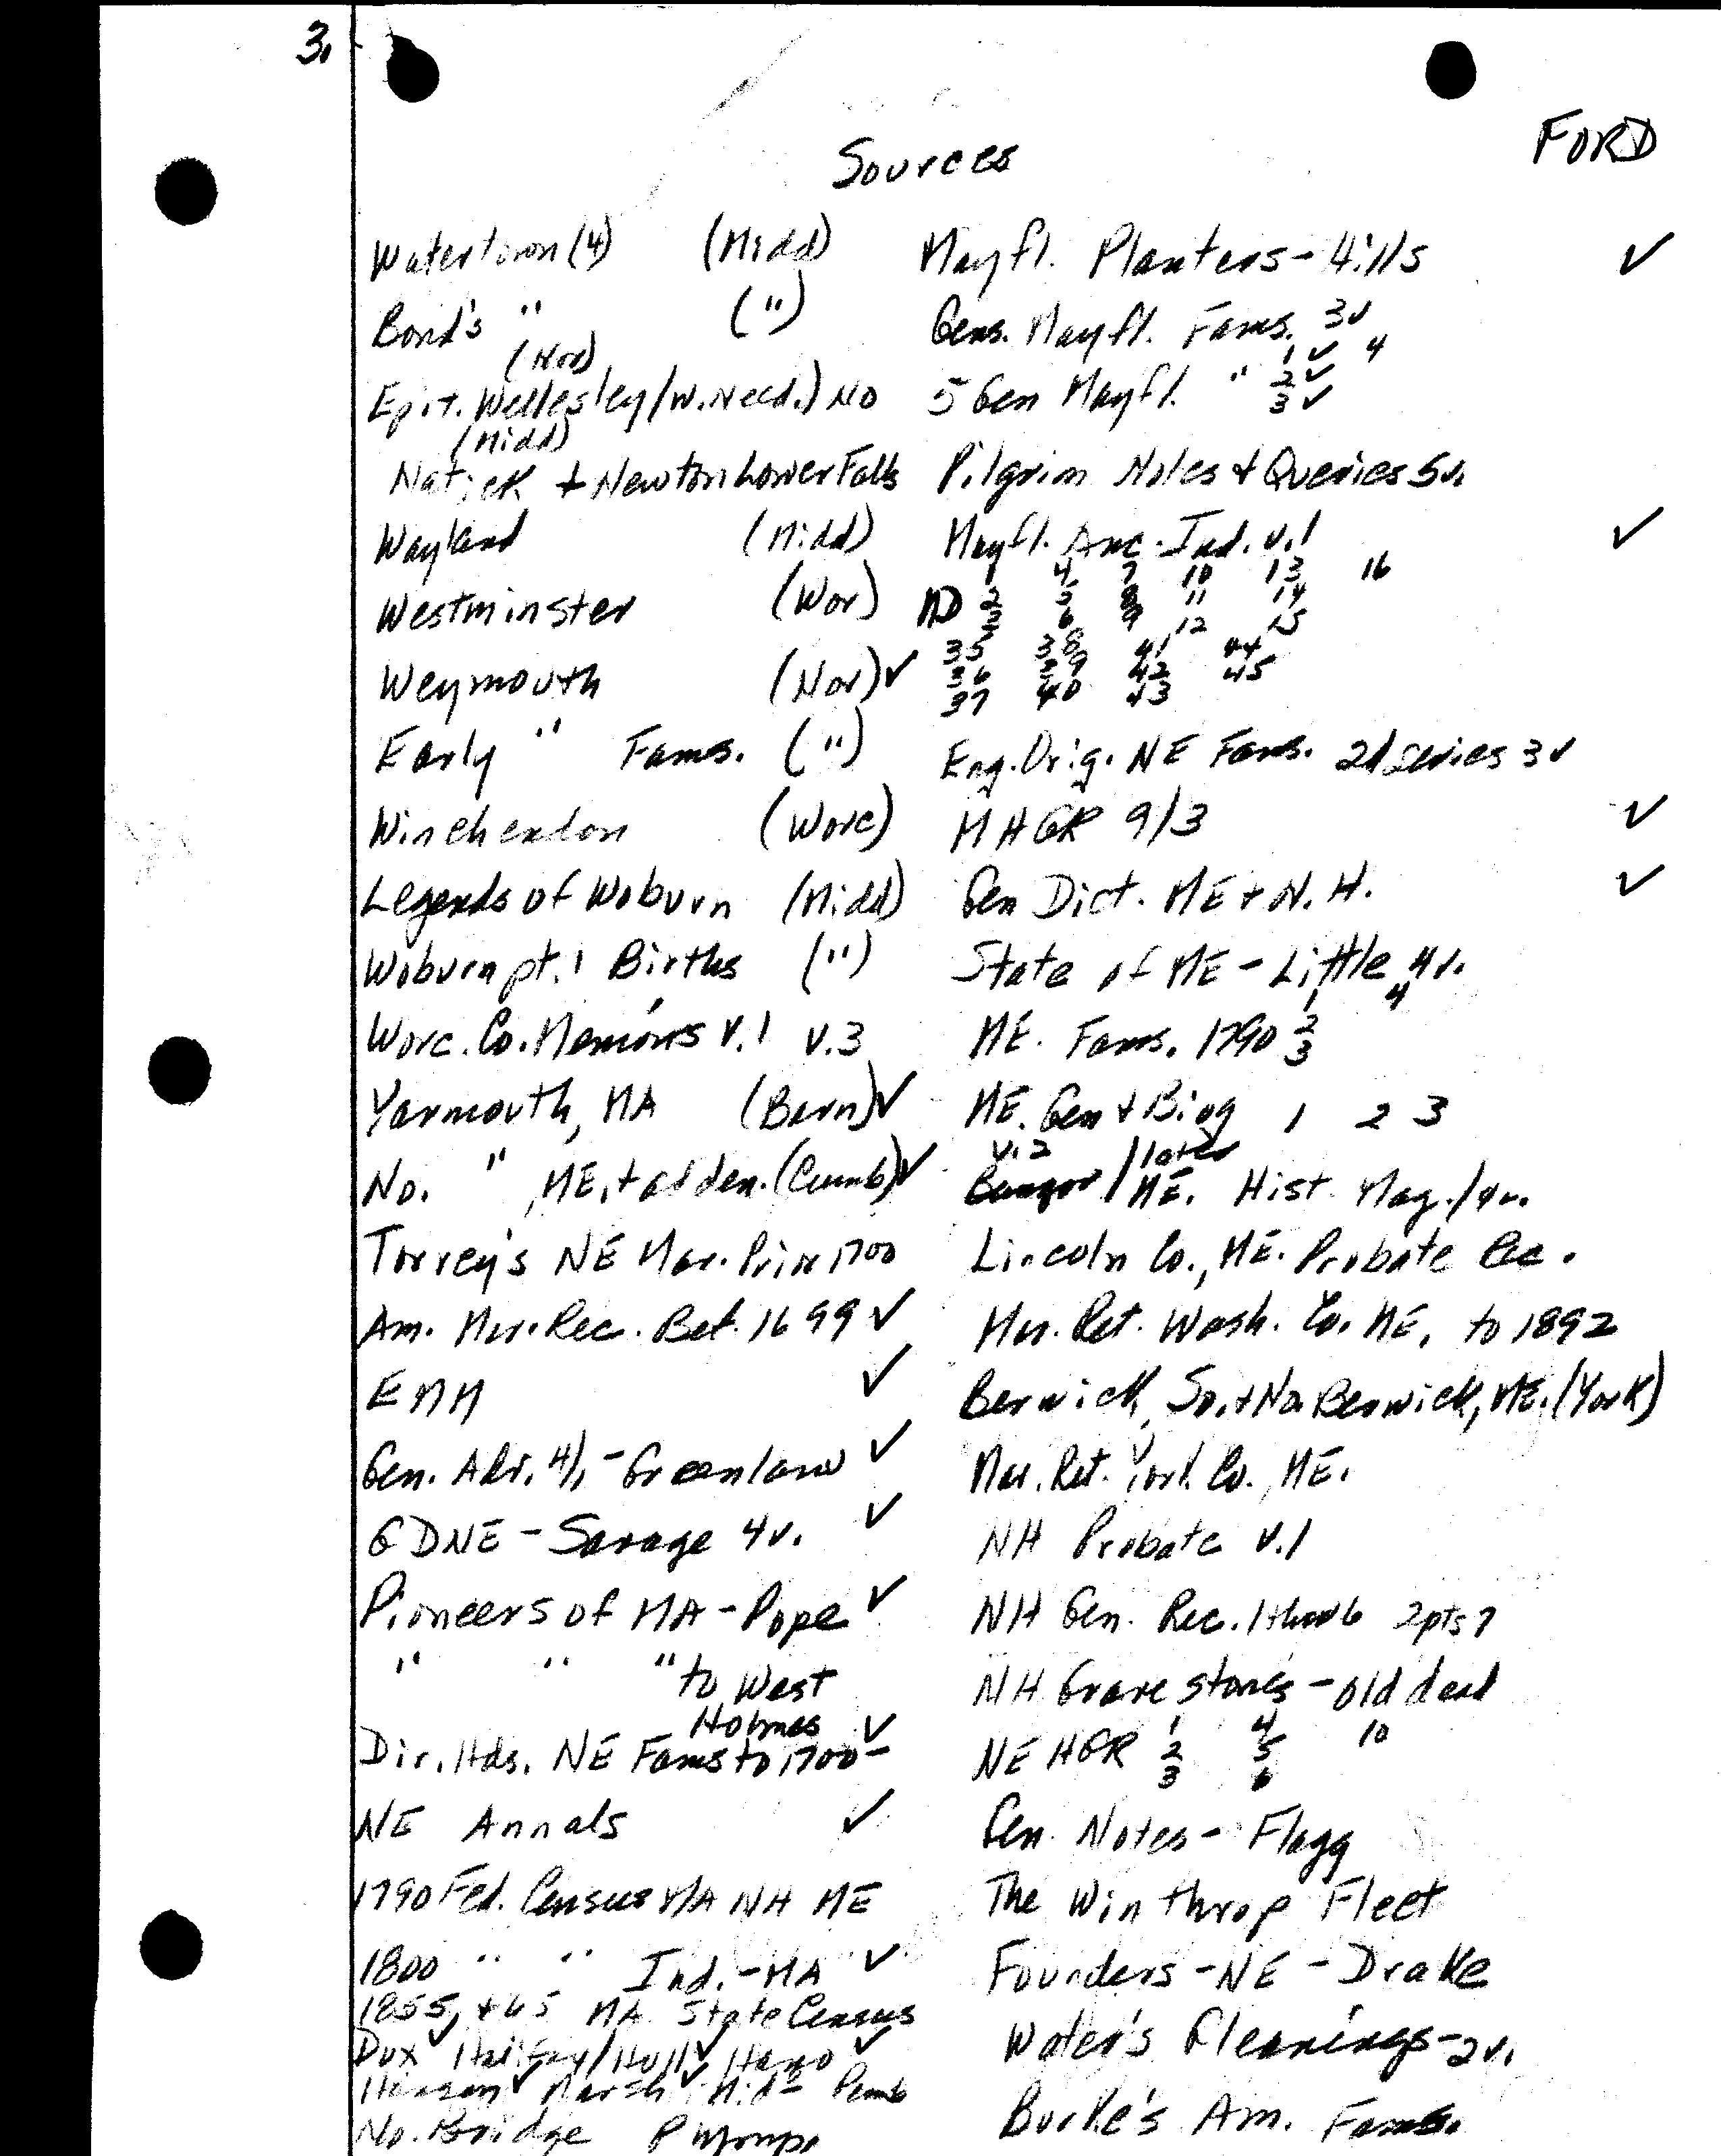 3.
FORD
Sources
Watertown (4) (Midd)
Bond's " (")
(Nor)
Epit. Wellesley/W. Need.) NO
(Midd)
Natick + Newton Lower Falls
Wayland (Midd)
Westminster (Wor)
Weymouth (Nor) ✓
Early " Fams. (")
Winchendon (Worc)
Legends of Woburn (Midd)
Woburn pt. 1 Births (")
Worc. Co. Memoirs v.1 v.3
Yarmouth, MA (Barn) ✓
No. " , ME, + adden. (Cumb) ✓
Torrey's NE Mar. Prior 1700
Am. Mar. Rec. Bef. 1699 ✓
EMM ✓
Gen. Adv. 4v. - Greenlaw ✓
GDNE - Savage 4v. ✓
Pioneers of MA - Pope ✓
" " " to West
Holmes ✓
Dir. Hds. NE Fams to 1700 -
NE Annals ✓
1790 Fed. Census MA NH ME
1800 " " Ind. - MA ✓
1855, + 65 MA State Census
Dux ✓ Halifax / Hull ✓ Hano ✓
Hanson ✓ Marsh ✓ Mid Pemb
No. Bridge Plymp.
Mayfl. Planters - Hills ✓
Gens. Mayfl. Fams. 3v
1 ✓ 4
5 Gen Mayfl. " 2 ✓
3 ✓
Pilgrim Notes + Queries 5v.
Mayfl. Anc. Ind. v.1 ✓
1 4 7 10 13 16
MD 2 5 8 11 14
3 6 9 12 15
35 38 41 44
36 39 42 45
37 40 43
Eng. Orig. NE Fams. 2d series 3v
MHGR 9/3 ✓
Gen Dict. ME + N.H. ✓
State of ME - Little 4v.
1 4
ME. Fams. 1790 2
3
ME. Gen + Biog 1 2 3
v.2 / later
Bangor / ME. Hist. Mag. /
Lincoln Co., ME. Probate Rec.
Mar. Ret. Wash. Co. ME, to 1892
Berwick, So. + No. Berwick, ME. (York)
Mar. Ret. York Co., ME.
NH Probate v.1
NH Gen. Rec. 1 thru 6 2pts 7
NH Grave stones - old dead
1 4 10
NEHGR 2 5
3 6
Gen. Notes - Flagg
The Winthrop Fleet
Founders - NE - Drake
Water's Gleanings - 2v.
Burke's Am. Fams.